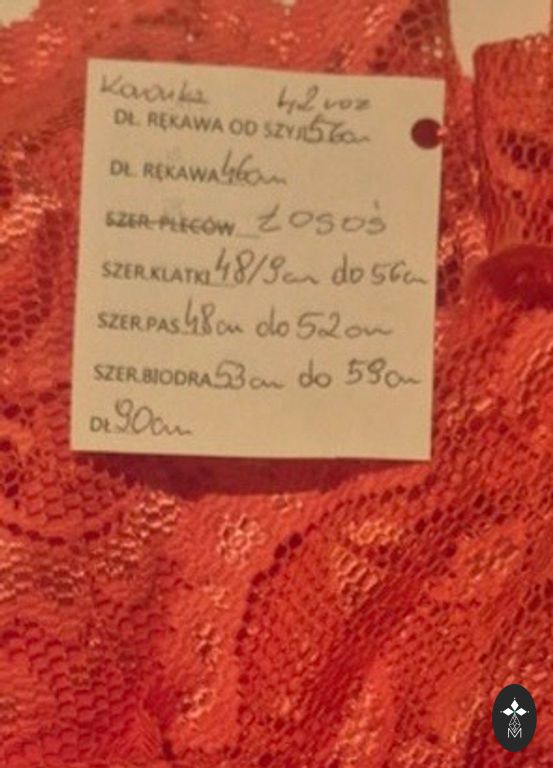 Koronka 42 roz
DŁ. RĘKAWA OD SZYI 56cm
DŁ. RĘKAWA 46cm
SZER. PLECÓW ŁOSOŚ
SZER.KLATKI 48/9cm do 56cm
SZER.PAS 48cm do 52cm
SZER.BIODRA 53cm do 59cm
DŁ 90cm
M